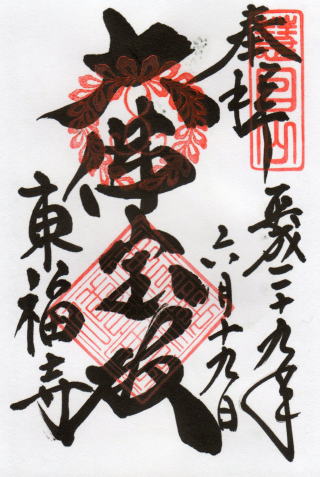 奉拝
平成二十九年
六月十九日
大佛宝殿
東福寺